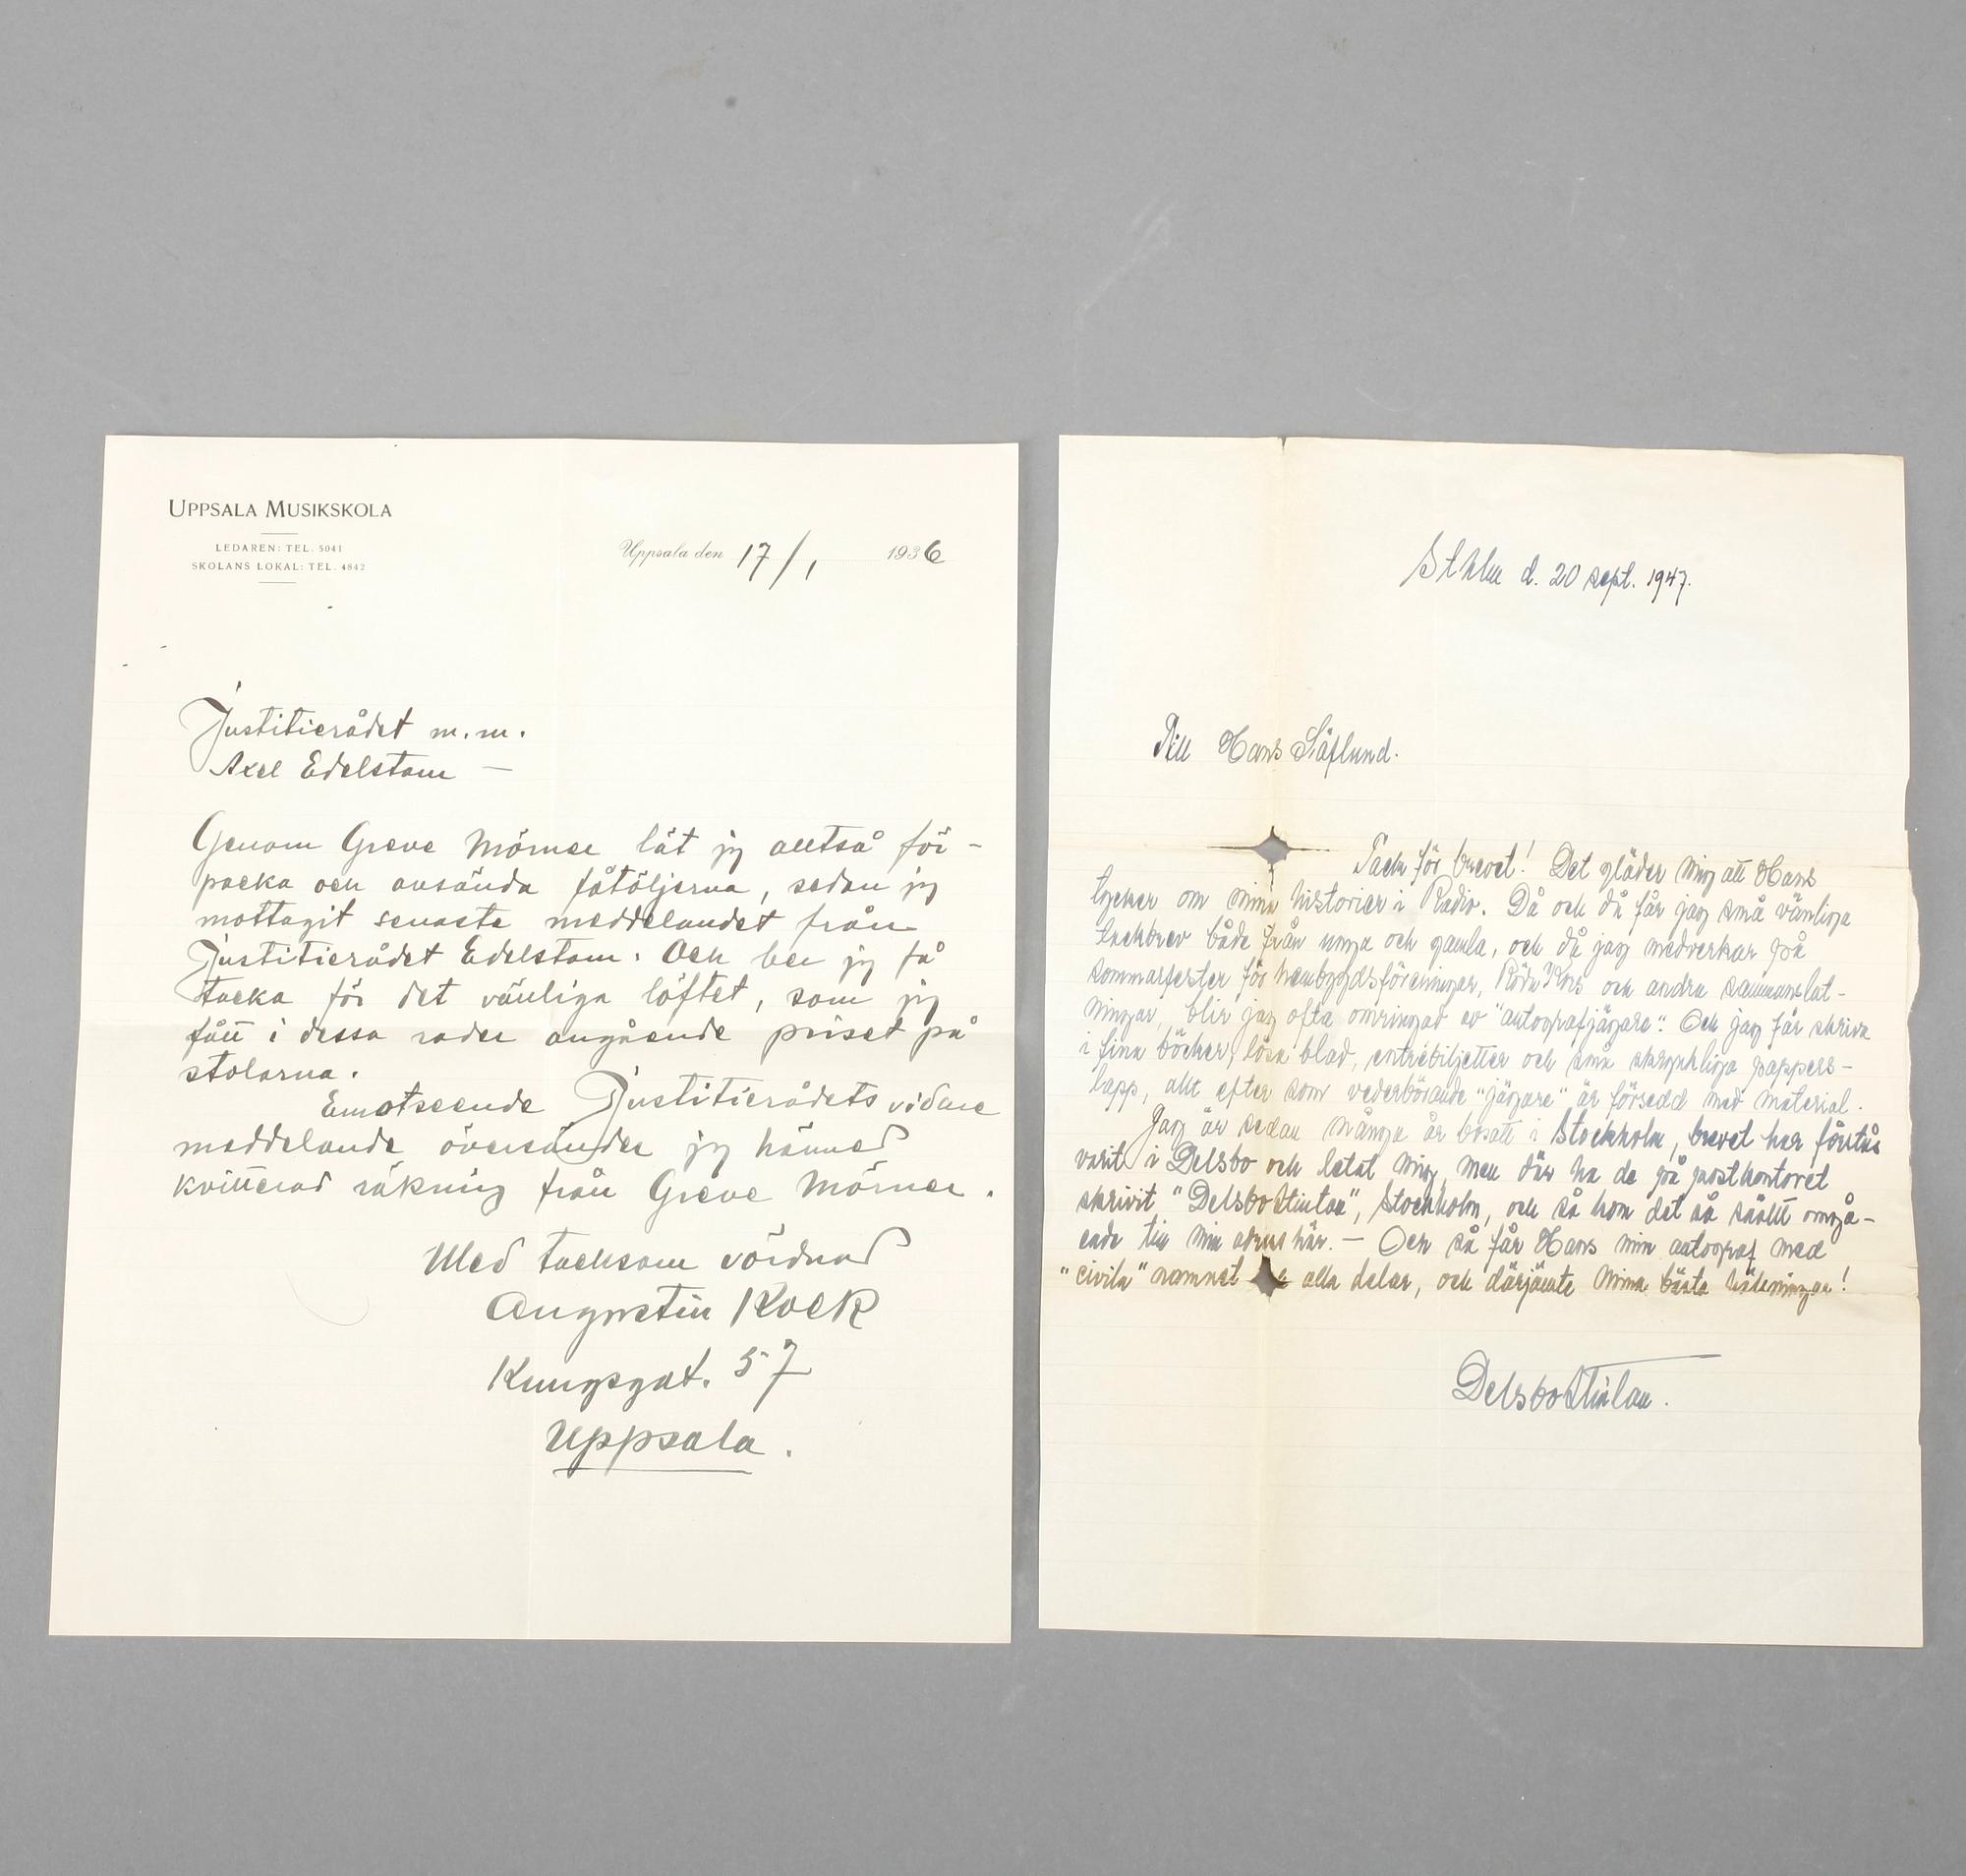 UPPSALA MUSIKSKOLA
LEDAREN: TEL. 5041
SKOLANS LOKAL: TEL. 4842
Uppsala den 17/1 1936
Justitierådet m.m.
Axel Edelstam —
Genom Greve Mörner lät jg alltså för-
packa och avsända fåtöljerna, sedan jg
mottagit senaste meddelandet från
Justitierådet Edelstam. Och ber jg få
tacka för det vänliga löftet, som jg
fått i dessa rader angående priset på
stolarna.
Emotseende Justitierådets vidare
meddelande översänder jg härmed
kvitterad räkning från Greve Mörner.
Med tacksam vördnad
Augustin Kock
Kungsgat. 57
Uppsala.
Sthlm d. 20 sept. 1947.
Till Hans Säflund.
Tack för brevet! Det gläder mig att Hans
tycker om mina historier i Radio. Då och då får jag små vänliga
tackbrev både från unga och gamla, och då jag medverkar på
sommarfester för hembygdsföreningar, Röda Kors och andra sammanslut-
ningar, blir jag ofta omringad av "autografjägare". Och jag får skriva
i fina böcker, lösa blad, entrébiljetter och små skrynkliga pappers-
lapp, allt efter som vederbörande "jägare" är försedd med material.
Jag är sedan många år bosatt i Stockholm, brevet har förstås
varit i Delsbo och letat mig, men där ha de på postkontoret
skrivit "Delsbostintan", Stockholm, och så kom det så snällt omgå-
ende till min adress här. — Och så får Hans min autograf med
"civila" namnet alla delar, och därjämte mina bästa hälsningar!
Delsbostintan.